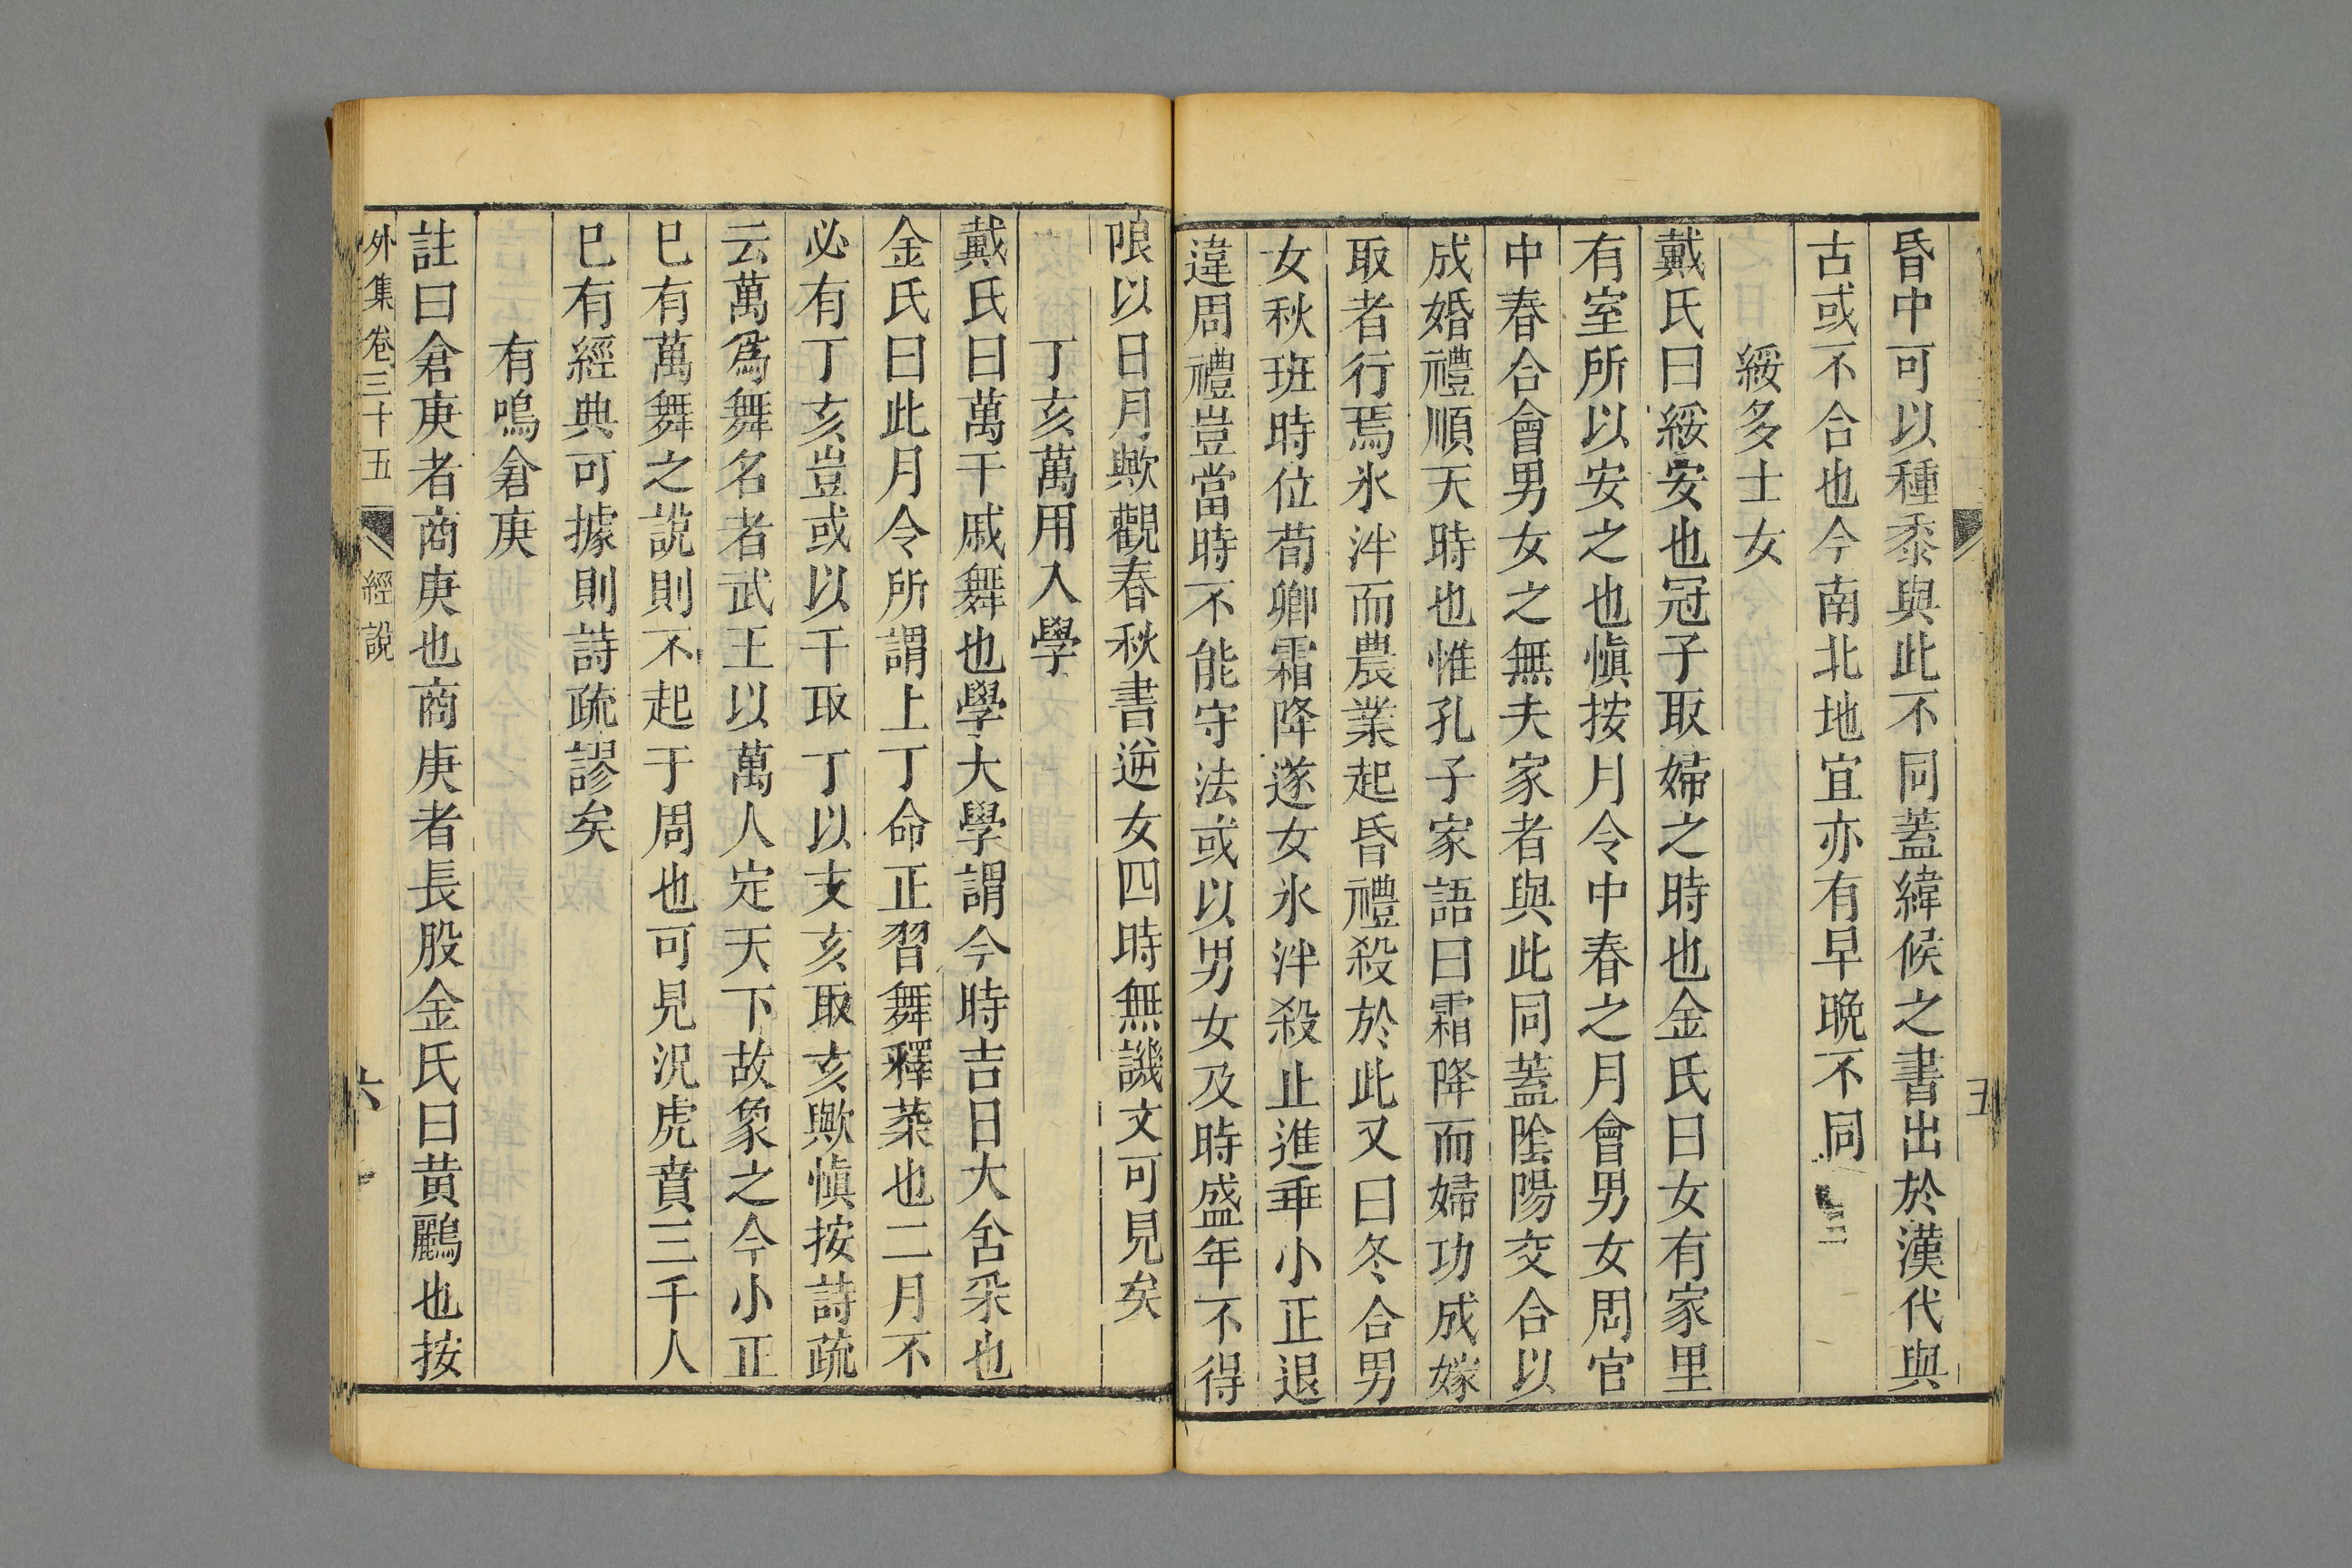 昏中可以種黍與此不同蓋緯候之書出於漢代與
古或不合也今南北地宜亦有早晚不同
綏多士女
戴氏曰綏安也冠子取婦之時也金氏曰女有家里
有室所以安之也慎按月令中春之月會男女周官
中春合會男女之無夫家者與此同蓋陰陽交合以
成婚禮順天時也惟孔子家語曰霜降而婦功成嫁
取者行焉氷泮而農業起昏禮殺於此又曰冬合男
女秋班時位荀卿霜降逆女氷泮殺止進乖小正退
違周禮豈當時不能守法或以男女及時盛年不得
限以日月歟觀春秋書逆女四時無譏文可見矣
丁亥萬用入學
戴氏曰萬干戚舞也學大學謂今時吉日大舍采也
金氏曰此月令所謂上丁命正習舞釋菜也二月不
必有丁亥豈或以干取丁以支亥取亥歟慎按詩疏
云萬爲舞名者武王以萬人定天下故象之今小正
巳有萬舞之說則不起于周也可見況虎賁三千人
巳有經典可據則詩疏謬矣
有鳴倉庚
註曰倉庚者商庚也商庚者長股金氏曰黃鸝也按
外集卷三十五 經說 六